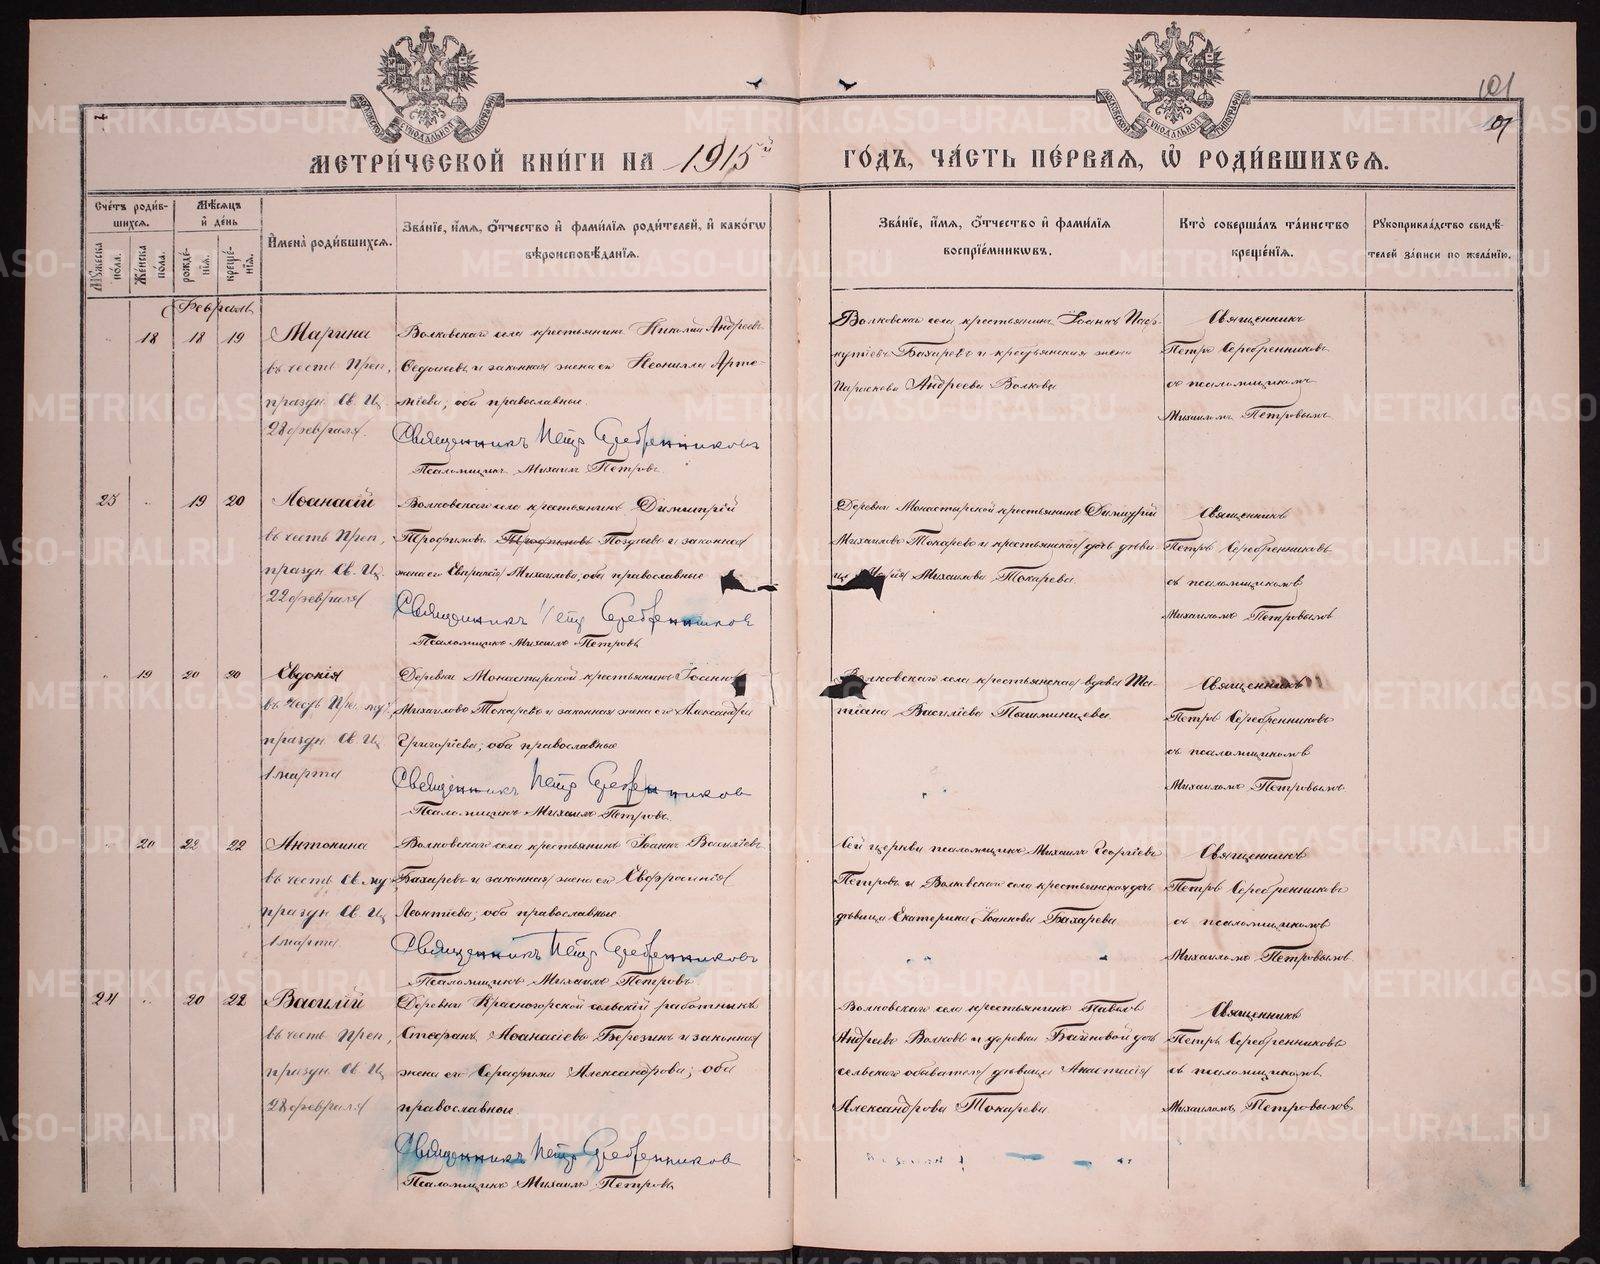 101
МЕТРИЧЕСКОЙ КНИГИ НА 1915й ГОДЪ, ЧАСТЬ ПЕРВАЯ, Ѡ РОДИВШИХСЯ.
Счетъ родив-
шихся.
Мѣсяцъ
и день
Мужеска
пола.
Женска
пола.
рожде-
нїя.
креще-
нїя.
Имена родившихся.
Званїе, имя, ѻтчество и фамилїя родителей, и какогѡ
вѣроисповѣданїя.
Званїе, имя, ѻтчество и фамилїя
воспрїемниковъ.
Кто совершалъ таинство
крещенїя.
Рукоприкладство свидѣ-
телей записи по желанїю.
Февраль
18 18 19 Марина
въ честь Преп,
праздн. Св. Ц.
28 февраля.
Волковскаго села крестьянинъ Николай Андреевъ
и законная жена его Неонилла Арте-
міева; оба православные.
Священникъ Петр Серебренников
Псаломщикъ Михаилъ Петровъ.
Волковскаго села крестьянинъ Іоаннъ
Бахаревъ и крестьянская жена
Параскева Андреева Волкова
Священникъ
Петръ Серебренниковъ
съ псаломщикомъ
Михаиломъ Петровымъ
19 20 Аѳанасій
въ честь Преп,
праздн. Св. Ц.
22 февраля
Волковскаго села крестьянинъ Димитрій
Трофимовъ Трофимовъ и законная
жена его Михаилова, оба православные
Священникъ Петр Серебренников
Псаломщикъ Михаилъ Петровъ
Деревни Монастырской крестьянинъ Димитрій
Михаиловъ Токаревъ и крестьянская дочь дѣви-
Михаилова Токарева.
Священникъ
Петръ Серебренниковъ
съ псаломщикомъ
Михаиломъ Петровымъ
19 20 20 Евдокія
въ честь Преп. муч.
праздн. Св. Ц.
1 марта
Деревни Монастырской крестьянинъ Іоаннъ
Михаиловъ Токаревъ и законная жена его Александра
Григоріева; оба православные
Священникъ Петр Серебренников
Псаломщикъ Михаилъ Петровъ.
Волковскаго села крестьянская вдова Та-
тіана Василіева Пашминцева
Священникъ
Петръ Серебренниковъ
съ псаломщикомъ
Михаиломъ Петровымъ
20 22 22 Антонина
въ честь Св. муч
праздн Св. Ц
1 марта
Волковскаго села крестьянинъ Іоаннъ Василіевъ
Бахаревъ и законная жена его Евфросинія
Леонтіева; оба православные.
Священникъ Петр Серебренников
Псаломщикъ Михаилъ Петровъ
Сей церкви псаломщикъ Михаилъ Георгіевъ
Петровъ и Волковскаго села крестьянская дочь
дѣвица Екатерина Іоаннова Бахарева
Священникъ
Петръ Серебренниковъ
съ псаломщикомъ
Михаиломъ Петровымъ
24 20 22 Василій
въ честь Преп,
праздн. Св. Ц
28 февраля
Деревни Красногорской сельскій работникъ
Стефанъ Аѳанасіевъ Борозинъ и законная
жена его Серафима Александрова; оба
православные.
Священникъ Петр Серебренников
Псаломщикъ Михаилъ Петровъ
Волковскаго села крестьянинъ Павелъ
Андреевъ Волковъ и деревни Байновой дочь
сельскаго обывателя дѣвица Анастасія
Александрова Токарева.
Священникъ
Петръ Серебренниковъ
съ псаломщикомъ
Михаиломъ Петровымъ
METRIKI.GASO-URAL.RU